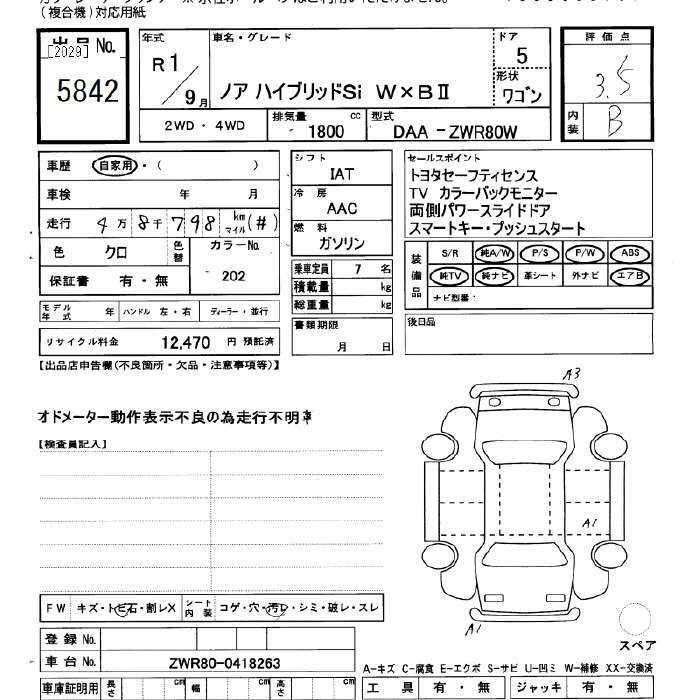 (複合機)対応用紙
出品No.
[2029]
5842
年式
R1/9月
車名・グレード
ノア ハイブリッドSi W×BⅡ
ドア
5
形状
ワゴン
評価点
3.5
内装
B
2WD・4WD
排気量 cc
1800
型式
DAA-ZWR80W
車歴 自家用・( )
車検 年 月
走行 4万8千798 km マイル (#)
色 クロ
色替
カラーNo.
202
保証書 有・無
モデル年式 年 ハンドル 左・右 ディーラー・並行
リサイクル料金 12,470 円 預託済
シフト
IAT
冷房
AAC
燃料
ガソリン
乗車定員 7 名
積載量 kg
総重量 kg
書類期限
月 日
セールスポイント
トヨタセーフティセンス
TV カラーバックモニター
両側パワースライドドア
スマートキー・プッシュスタート
装備品
S/R 純A/W P/S P/W ABS
純TV 純ナビ 革シート 外ナビ エアB
ナビ型番:
後日品
【出品店申告欄(不良箇所・欠品・注意事項等)】
オドメーター動作表示不良の為走行不明車
【検査員記入】
A3
A1
A1
スペア
FW キズ・トビ石・割レX シート内装 コゲ・穴・汚レ・シミ・破レ・スレ
登録No.
車台No. ZWR80-0418263
A-キズ C-腐食 E-エクボ S-サビ U-凹ミ W-補修 XX-交換済
車庫証明用 長さ cm 幅 cm 高さ cm
工具 有・無 ジャッキ 有・無